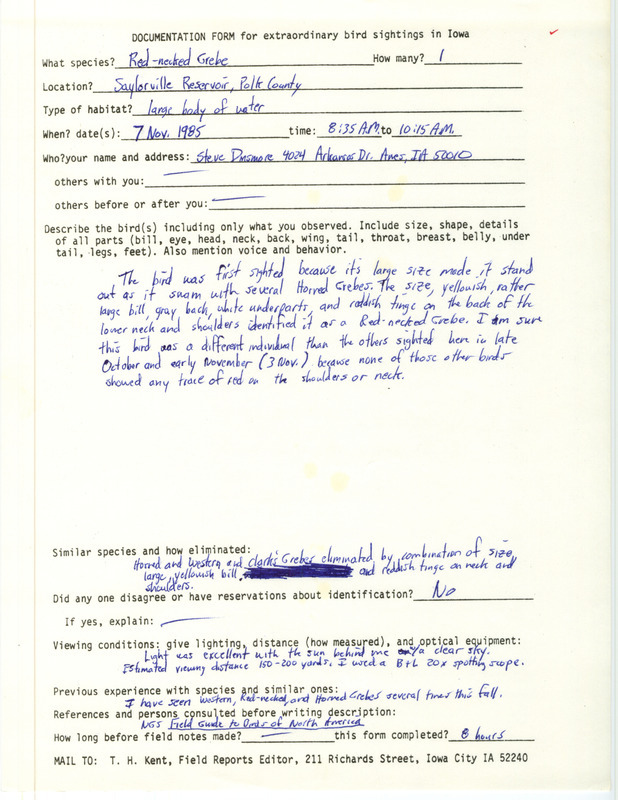 DOCUMENTATION FORM for extraordinary bird sightings in Iowa
What species? Red-necked Grebe How many? 1
Location? Saylorville Reservoir, Polk County
Type of habitat? large body of water
When? date(s): 7 Nov. 1985 time: 8:35 A.M. to 10:15 A.M.
Who? your name and address: Steve Dinsmore 4024 Arkansas Dr. Ames, IA 50010
others with you:
others before or after you:
Describe the bird(s) including only what you observed. Include size, shape, details
of all parts (bill, eye, head, neck, back, wing, tail, throat, breast, belly, under
tail, legs, feet). Also mention voice and behavior.
The bird was first sighted because it's large size made it stand
out as it swam with several Horred Grebes. The size, yellowish, rather
large bill, gray back, white underparts, and reddish tinge on the back of the
lower neck and shoulders identified it as a Red-necked Grebe. I am sure
this bird was a different individual than the others sighted here in late
October and early November (3 Nov.) because none of those other birds
showed any trace of red on the shoulders or neck.
Similar species and how eliminated:
Horred and Western and Clark's Grebes eliminated by combination of size,
large, yellowish bill, and reddish tinge on neck and
shoulders.
Did any one disagree or have reservations about identification? No
If yes, explain:
Viewing conditions: give lighting, distance (how measured), and optical equipment:
Light was excellent with the sun behind me w/a clear sky.
Estimated viewing distance 150-200 yards. I used a B+L 20x spotting scope.
Previous experience with species and similar ones:
I have seen Western, Red-necked, and Horred Grebes several times this fall.
References and persons consulted before writing description:
NGS Field Guide to Birds of North America
How long before field notes made? this form completed? 8 hours
MAIL TO: T. H. Kent, Field Reports Editor, 211 Richards Street, Iowa City IA 52240